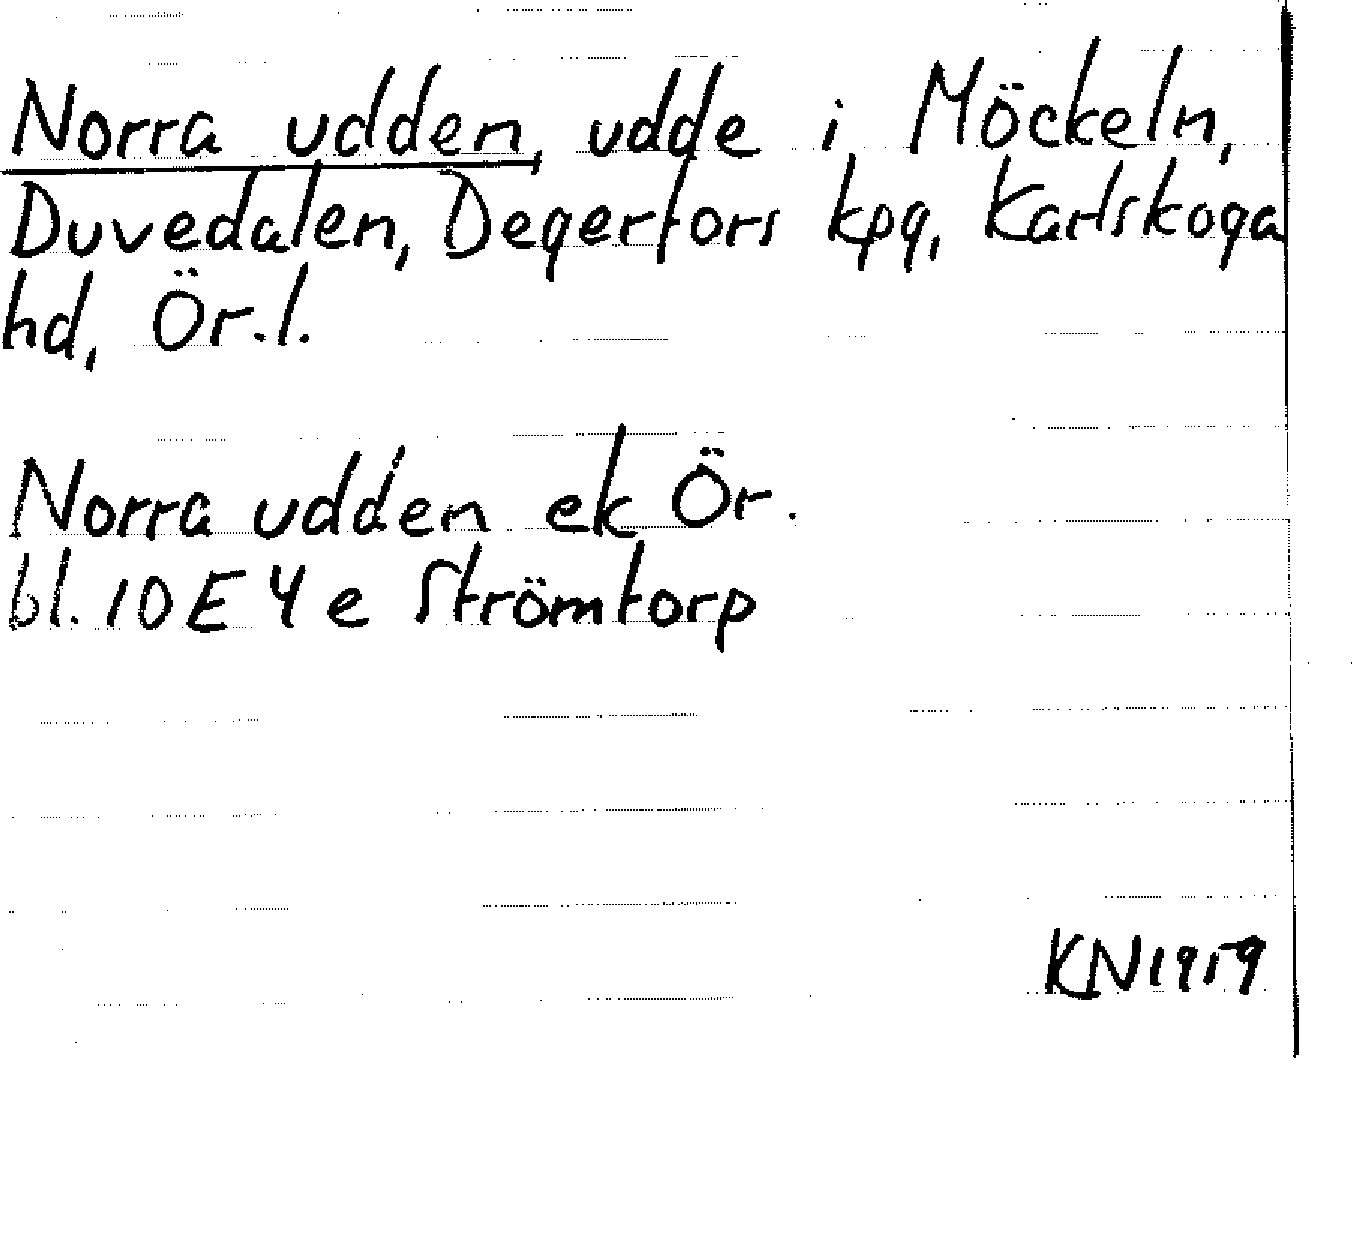 Norra udden, udde i Möckeln,
Duvedalen, Degerfors kpg, Karlskoga
hd, Ör.l.
Norra udden ek Ör.
bl. 10E 4 e Strömtorp
KN1959